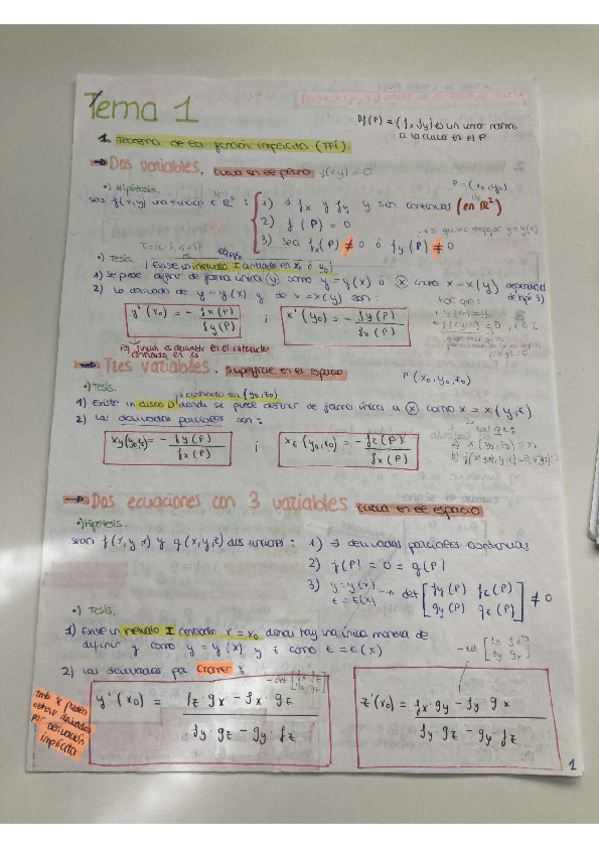 Tema 1
Df(P) = (fx, fy) es un vector normal
a la curva en el P
1. Teorema de la función implícita (TFI)
→ Dos variables. curva en el plano f(x,y) = C
•) Hipótesis.
P = (x₀, y₀)
sea f(x,y) una función ∈ ℝ² : 1) ∃ fx y fy y son continuas (en ℝ²)
2) f(P) = 0
3) Sea fx(P) ≠ 0 ó fy(P) ≠ 0
•) Tesis.
¡Existe un intervalo I centrado en x₀ ó y₀!
1) se puede definir de forma única (y) como y = y(x) ó (x) como x = x(y)
2) La derivada de y = y(x) y de x = x(y) son:
y'(x₀) = - fx(P) / fy(P) ; x'(y₀) = - fy(P) / fx(P)
→ Tres variables. superficie en el espacio
P(x₀, y₀, z₀)
•) Tesis.
centrado en (y₀, z₀)
1) Existe un disco D donde se puede definir de forma única a (x) como x = x(y,z)
2) Las derivadas parciales son:
xy(y₀,z₀) = - fy(P) / fx(P) ; xz(y₀,z₀) = - fz(P) / fx(P)
→ Dos ecuaciones con 3 variables curva en el espacio
•) Hipótesis.
sean f(x,y,z) y g(x,y,z) dos funciones: 1) ∃ derivadas parciales continuas
2) f(P) = 0 = g(P)
3) y = y(x)
z = z(x) → det [fy(P) fz(P)
gy(P) gz(P)] ≠ 0
•) Tesis.
1) Existe un intervalo I centrado x = x₀ donde hay una única manera de
definir y como y = y(x) y z como z = z(x)
2) Las derivadas por Cramer:
y'(x₀) = fz·gx - fx·gz / fy·gz - gy·fz
z'(x₀) = fx·gy - fy·gx / fy·gz - gy·fz
Tmb se pueden
obtener derivadas
por derivación
implícita
1